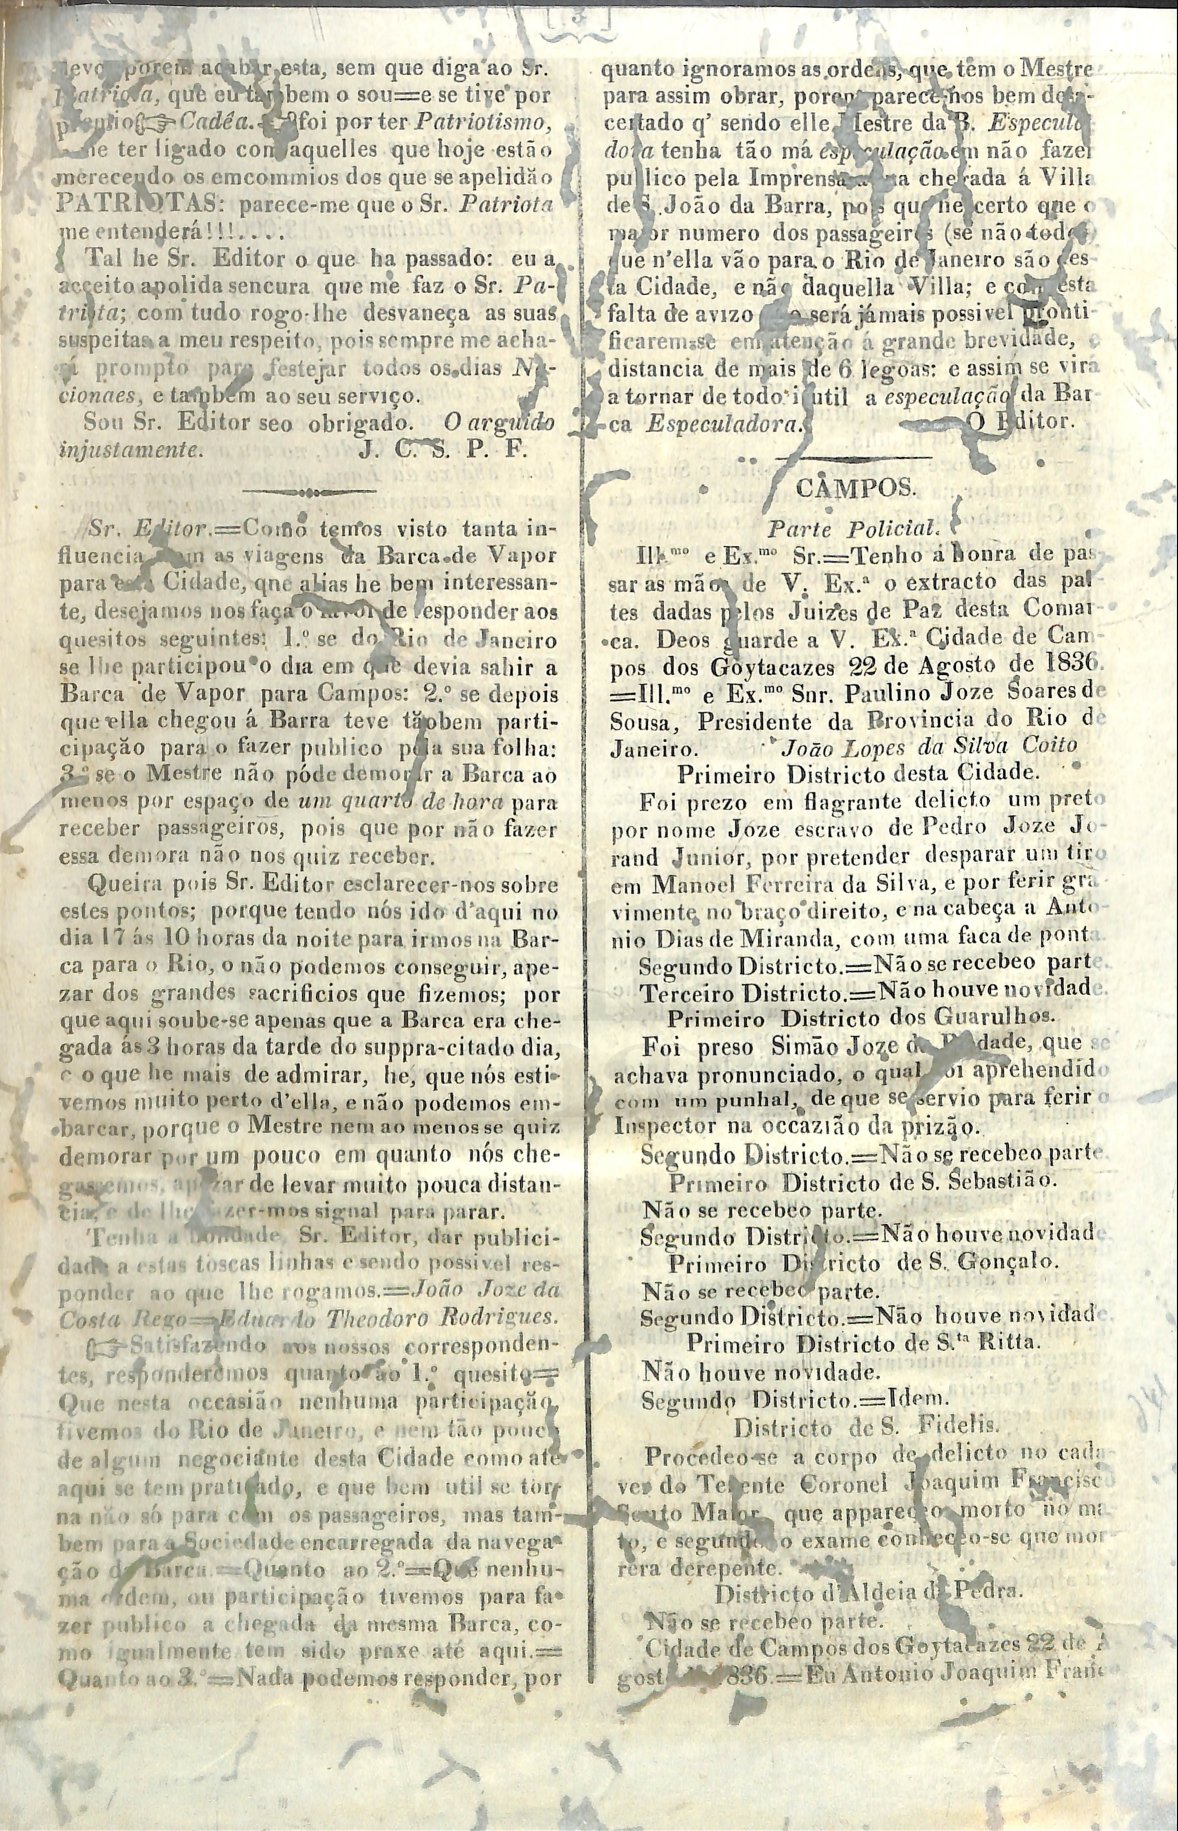 [ 3 ]
devo porem acabar esta, sem que diga ao Sr.
Patriota, que eu tambem o sou=e se tive por
premio Cadêa. foi por ter Patriotismo,
me ter ligado com aquelles que hoje estão
merecendo os emcommios dos que se apelidão
PATRIOTAS: parece-me que o Sr. Patriota
me entenderá!!!....
Tal he Sr. Editor o que ha passado: eu a
acceito apolida sencura que me faz o Sr. Pa-
triota; com tudo rogo-lhe desvaneça as suas
suspeitas a meu respeito, pois sempre me acha-
rá prompto para festejar todos os dias Na-
cionaes, e tambem ao seu serviço.
Sou Sr. Editor seo obrigado. O arguido
injustamente. J. C. S. P. F.
Sr. Editor.=Como temos visto tanta in-
fluencia com as viagens da Barca de Vapor
para esta Cidade, qne alias he bem interessan-
te, desejamos nos faça o favor de responder aos
quesitos seguintes: 1.º se do Rio de Janeiro
se lhe participou o dia em que devia sahir a
Barca de Vapor para Campos: 2.º se depois
que ella chegou á Barra teve tãobem parti-
cipação para o fazer publico pela sua folha:
3.º se o Mestre não póde demorar a Barca ao
menos por espaço de um quarto de hora para
receber passageiros, pois que por não fazer
essa demora não nos quiz receber.
Queira pois Sr. Editor esclarecer-nos sobre
estes pontos; porque tendo nós ido d'aqui no
dia 17 ás 10 horas da noite para irmos na Bar-
ca para o Rio, o não podemos conseguir, ape-
zar dos grandes sacrificios que fizemos; por
que aqui soube-se apenas que a Barca era che-
gada ás 3 horas da tarde do suppra-citado dia,
e o que he mais de admirar, he, que nós esti-
vemos muito perto d'ella, e não podemos em-
barcar, porque o Mestre nem ao menos se quiz
demorar por um pouco em quanto nós che-
gassemos, apezar de levar muito pouca distan-
cia, e de lhe fazer-mos signal para parar.
Tenha a bondade, Sr. Editor, dar publici-
dade a estas toscas linhas e sendo possivel res-
ponder ao que lhe rogamos.=João Joze da
Costa Rego=Eduardo Theodoro Rodrigues.
Satisfazendo aos nossos corresponden-
tes, responderemos quanto ao 1.º quesito=
Que nesta occasião nenhuma participação
tivemos do Rio de Janeiro, e nem tão pouco
de algum negociante desta Cidade como até
aqui se tem praticado, e que bem util se tor-
na não só para com os passageiros, mas tam-
bem para a Sociedade encarregada da navega-
ção da Barca.=Quanto ao 2.º=Que nenhu-
ma ordem, ou participação tivemos para fa-
zer publico a chegada da mesma Barca, co-
mo igualmente tem sido praxe até aqui.=
Quanto ao 3.º=Nada podemos responder, por
quanto ignoramos as ordens, que tem o Mestre
para assim obrar, porem parece-nos bem desa-
certado q' sendo elle Mestre da B. Especula-
dora tenha tão má especulação em não fazer
publico pela Imprensa a sua chegada á Villa
de S. João da Barra, pois que he certo que o
maior numero dos passageiros (se não todos)
que n'ella vão para o Rio de Janeiro são des-
ta Cidade, e não daquella Villa; e com esta
falta de avizo não será jámais possivel pronti-
ficarem-se em atenção á grande brevidade, e
distancia de mais de 6 legoas: e assim se virá
a tornar de todo inutil a especulação da Bar-
ca Especuladora. O Editor.
CAMPOS.
Parte Policial.
Ill.mo e Ex.mo Sr.=Tenho á honra de pas-
sar as mãos de V. Ex.ª o extracto das par-
tes dadas pelos Juizes de Paz desta Comar-
ca. Deos guarde a V. Ex.ª Cidade de Cam-
pos dos Goytacazes 22 de Agosto de 1836.
=Ill.mo e Ex.mo Snr. Paulino Joze Soares de
Sousa, Presidente da Provincia do Rio de
Janeiro. João Lopes da Silva Coito
Primeiro Districto desta Cidade.
Foi prezo em flagrante delicto um preto
por nome Joze escravo de Pedro Joze Jo-
rand Junior, por pretender desparar um tiro
em Manoel Ferreira da Silva, e por ferir gra-
vimente no braço direito, e na cabeça a Anto-
nio Dias de Miranda, com uma faca de ponta.
Segundo Districto.=Não se recebeo parte.
Terceiro Districto.=Não houve novidade.
Primeiro Districto dos Guarulhos.
Foi preso Simão Joze da Piedade, que se
achava pronunciado, o qual foi aprehendido
com um punhal, de que se servio para ferir o
Inspector na occazião da prizão.
Segundo Districto.=Não se recebeo parte.
Primeiro Districto de S. Sebastião.
Não se recebeo parte.
Segundo Districto.=Não houve novidade
Primeiro Districto de S. Gonçalo.
Não se recebeo parte.
Segundo Districto.=Não houve novidade
Primeiro Districto de S.ta Ritta.
Não houve novidade.
Segundo Districto.=Idem.
Districto de S. Fidelis.
Procedeo-se a corpo de delicto no cada-
ver do Tenente Coronel Joaquim Francisco
Souto Maior, que appareceo morto no ma-
to, e segundo o exame conheceo-se que mor-
rera derepente.
Districto d'Aldeia da Pedra.
Não se recebeo parte.
Cidade de Campos dos Goytacazes 22 de A-
gosto de 1836.=Eu Antonio Joaquim Franc